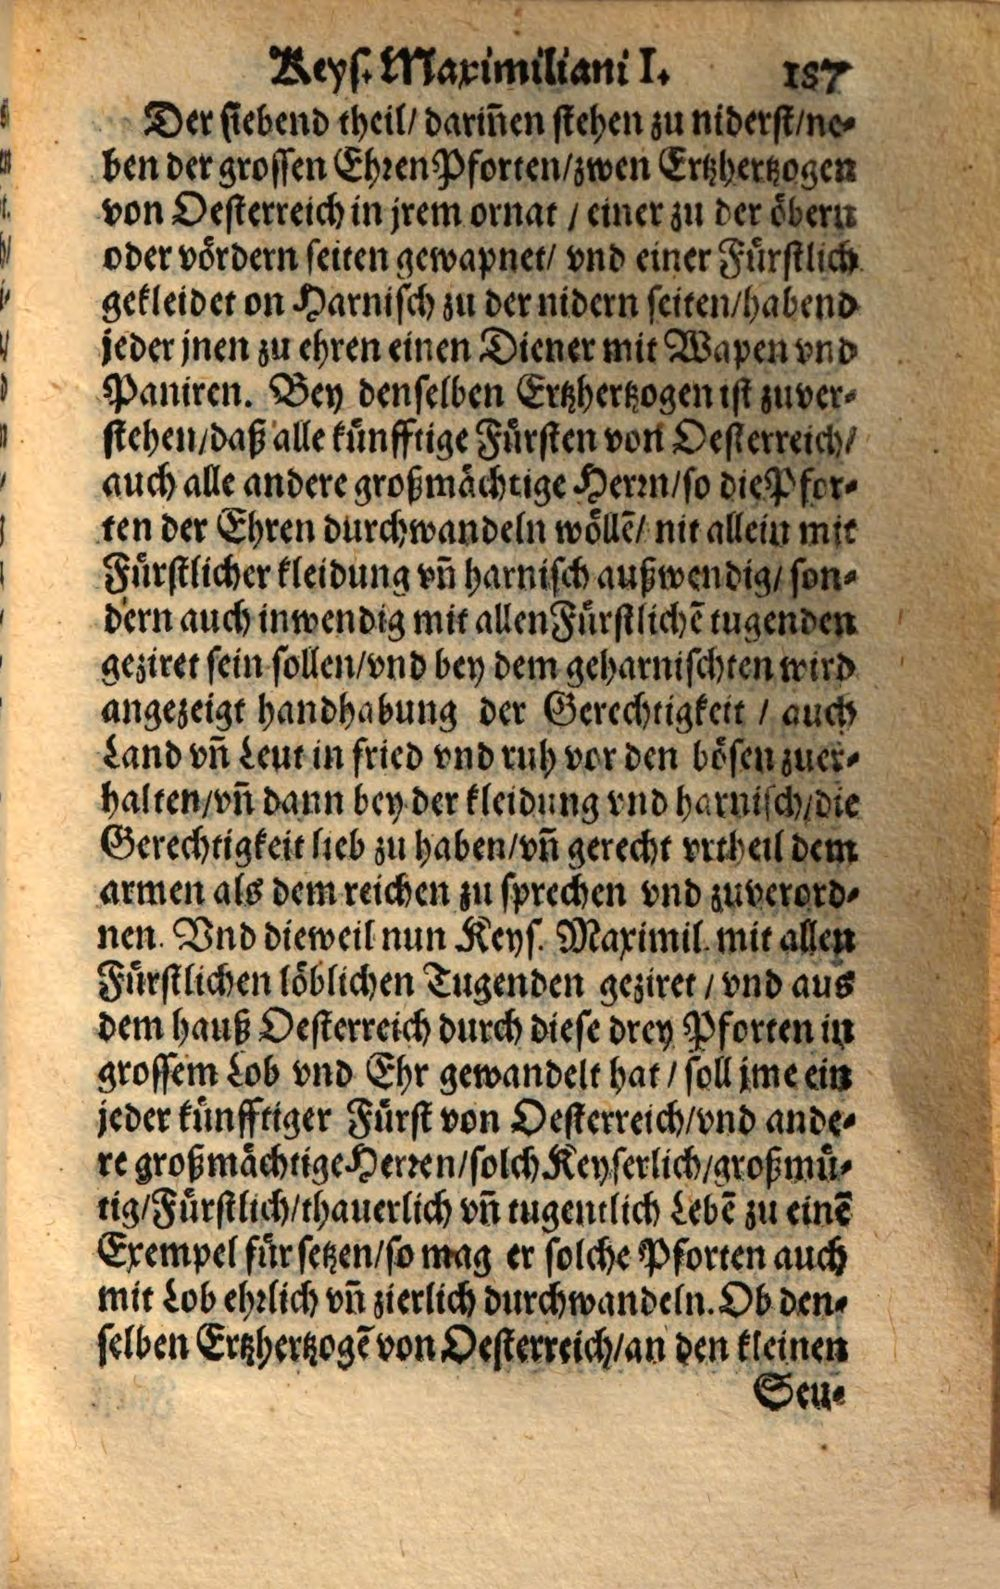 Keys. Maximiliani I. 187
Der siebend theil/ dariñen stehen zu niderst/ne-
ben der grossen EhrenPforten/zwen Ertzhertzogen
von Oesterreich in jrem ornat / einer zu der öbern
oder vördern seiten gewapnet/ vnd einer Fürstlich
gekleidet on Harnisch zu der nidern seiten/habend
jeder jnen zu ehren einen Diener mit Wapen vnd
Paniren. Bey denselben Ertzhertzogen ist zuver-
stehen/daß alle künfftige Fürsten von Oesterreich/
auch alle andere großmächtige Herrn/so die Pfor-
ten der Ehren durchwandeln wöllē/ nit allein mit
Fürstlicher kleidung vñ harnisch außwendig/ son-
dern auch inwendig mit allen Fürstlichē tugenden
geziret sein sollen/vnd bey dem geharnischten wird
angezeigt handhabung der Gerechtigkeit / auch
Land vñ Leut in fried vnd ruh vor den bösen zuer-
halten/vñ dann bey der kleidung vnd harnisch/die
Gerechtigkeit lieb zu haben/vñ gerecht vrtheil dem
armen als dem reichen zu sprechen vnd zuverord-
nen. Vnd dieweil nun Keys. Maximil. mit allen
Fürstlichen löblichen Tugenden geziret / vnd aus
dem hauß Oesterreich durch diese drey Pforten in
grossem Lob vnd Ehr gewandelt hat / soll jme ein
jeder künfftiger Fürst von Oesterreich/vnd ande-
re großmächtige Herren/solch Keyserlich/großmü-
tig/Fürstlich/thauerlich vñ tugentlich Lebē zu einē
Exempel für setzen/so mag er solche Pforten auch
mit Lob ehrlich vñ zierlich durchwandeln. Ob den-
selben Ertzhertzogē von Oesterreich/an den kleinen
Seu-